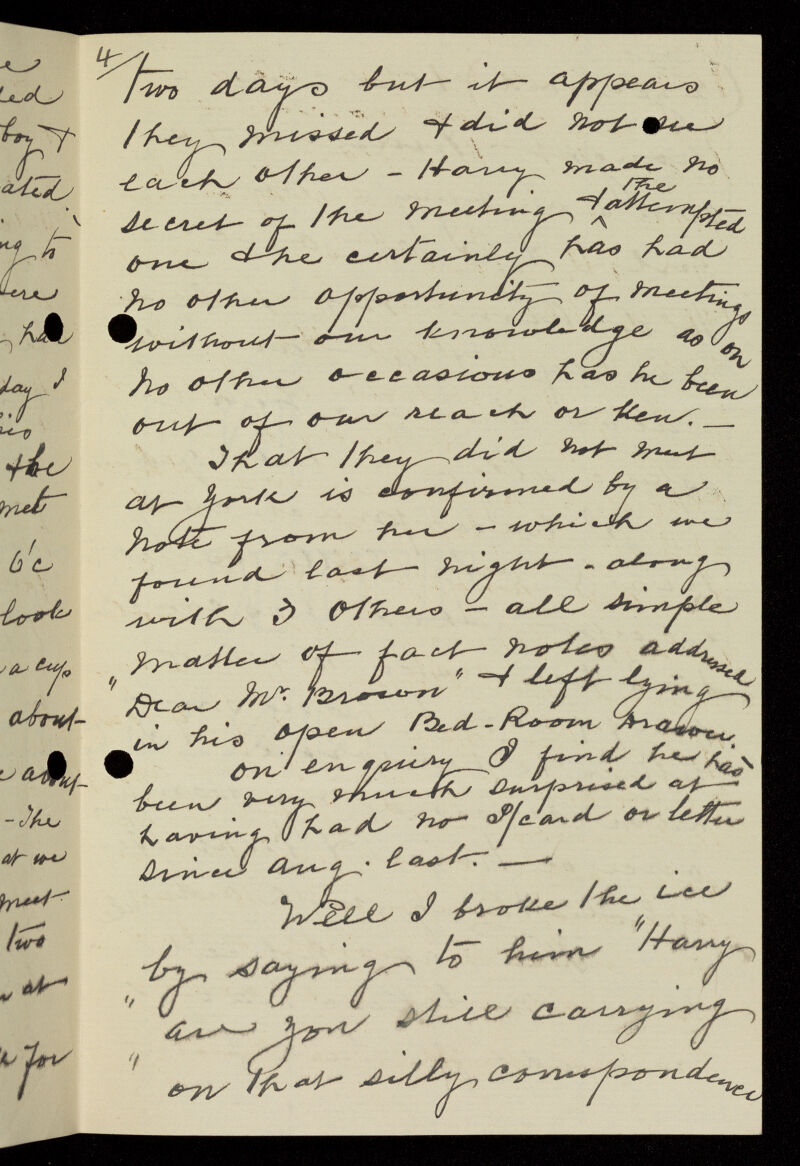 4/
two days but it appears
they missed & did not see
each other - Harry made no
secret of the meeting & the attempted
one & he certainly has had
no other opportunity of meetings
without our knowledge as on
no other occasions has he been
out of our reach or ken. —
That they did not meet
at York is confirmed by a
note from her - which we
found last night - along
with 3 others - all simple
matter of fact notes addressed
"Dear Mr. Brown" & left lying
in his open Bed-Room Drawer.
on enquiry I find he has
been very much surprised at
having had no P/card or letter
since Aug. last. —
Well I broke the ice
by saying to him "Harry
" are you still carrying
" on that silly correspondence
boy &
ated.
ng to
had
day I
& he
met
6'c
look
a cup
about
about
- The
at we
meet.
two
at
for